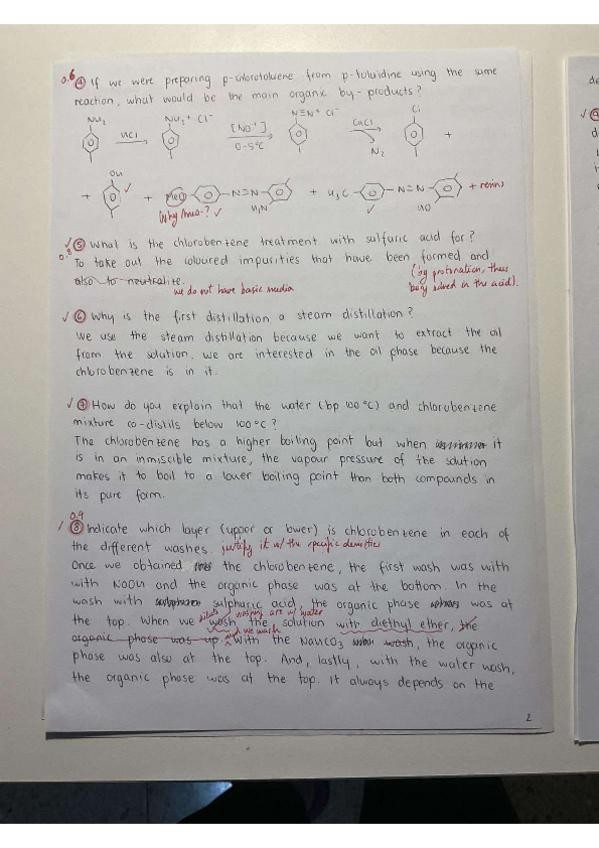 0.6 ④ If we were preparing p-chlorotoluene from p-toluidine using the same
reaction, what would be the main organic by-products?
NH₂ NH₃⁺ Cl⁻ N≡N⁺ Cl⁻ Cl
HCl [NO⁺] 0-5°C CuCl N₂ +
OH
+ + MeO N=N H₂N + H₃C N=N HO + resins
Why MeO-?
⑤ What is the chlorobenzene treatment with sulfuric acid for?
0.8 To take out the coloured impurities that have been formed and
also to neutralize. (by protonation, thus
we do not have basic media being solved in the acid).
⑥ Why is the first distillation a steam distillation?
We use the steam distillation because we want to extract the oil
from the solution, we are interested in the oil phase because the
chlorobenzene is in it.
⑦ How do you explain that the water (bp 100°C) and chlorobenzene
mixture co-distils below 100°C?
The chlorobenzene has a higher boiling point but when it
is in an inmiscible mixture, the vapour pressure of the solution
makes it to boil to a lower boiling point than both compounds in
its pure form.
0.9
⑧ Indicate which layer (upper or lower) is chlorobenzene in each of
the different washes. justify it w/ the specific densities
Once we obtained the chlorobenzene, the first wash was with
with NaOH and the organic phase was at the bottom. In the
wash with sulphuric acid, the organic phase was at
the top. When we wash the solution with diethyl ether, the
organic phase was up. and we wash With the NaHCO₃ wash, the organic
phase was also at the top. And, lastly, with the water wash,
the organic phase was at the top. It always depends on the
2